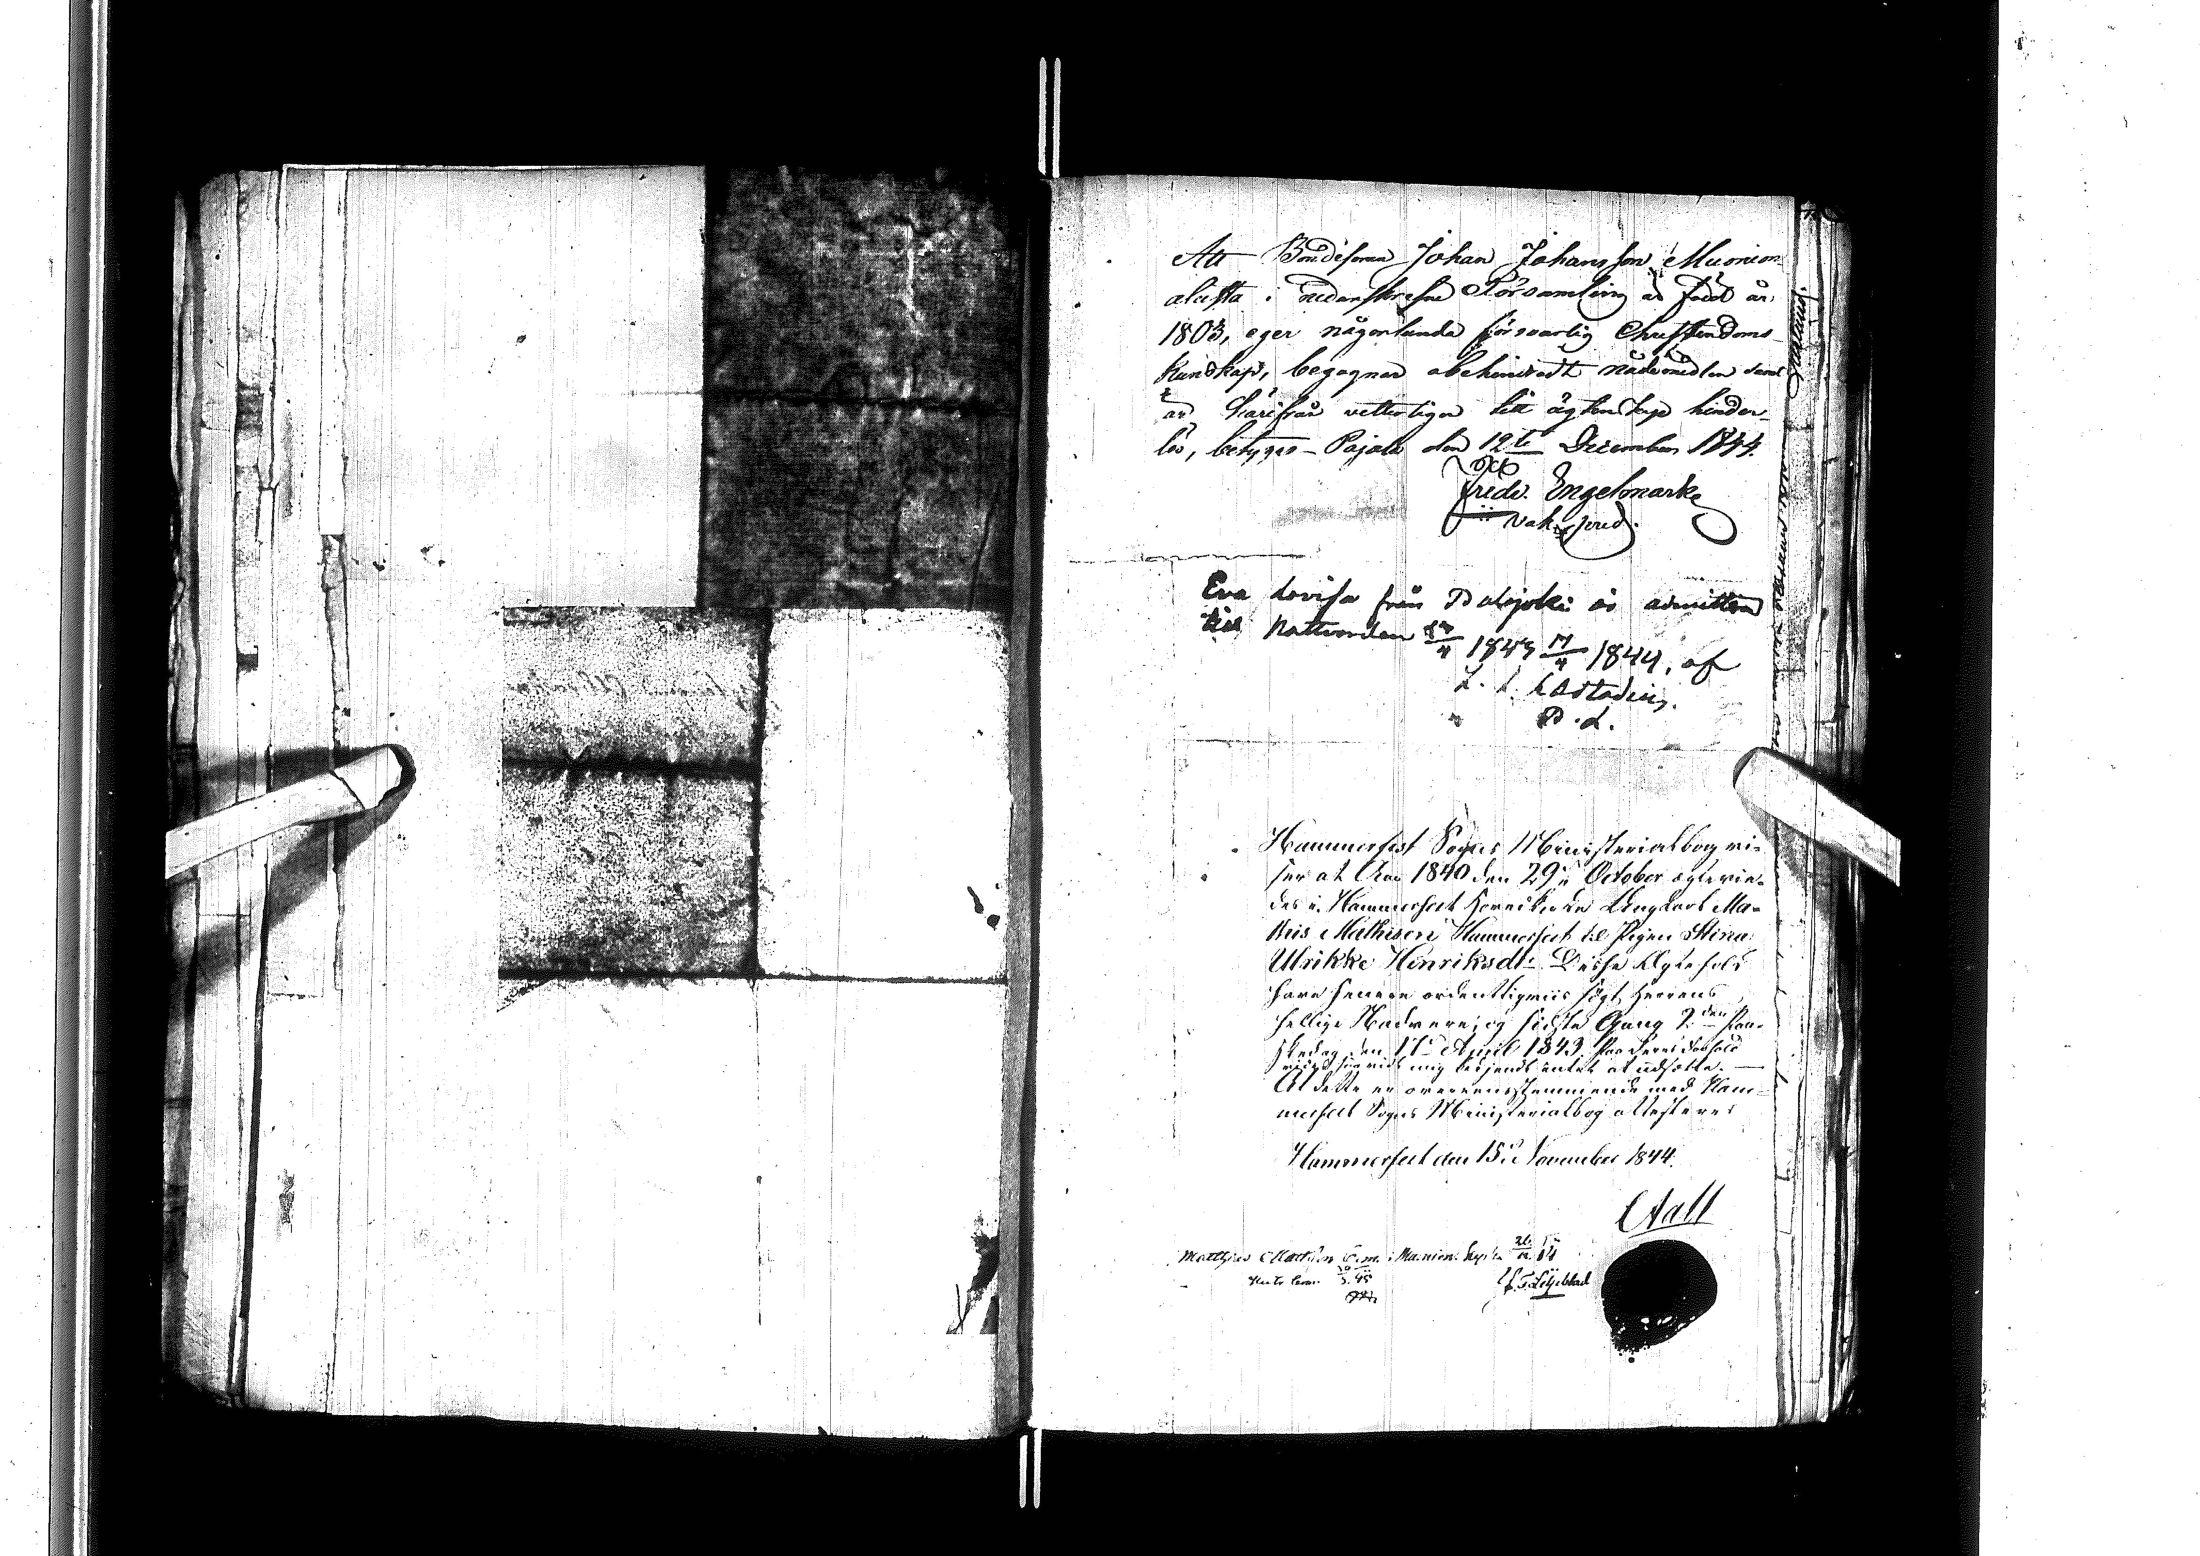 Att Bondesonen Johan Johansson Muonion-
alusta i nedanskrefne Församling är född år
1803, eger någorlunda försvarlig Christendoms-
kundskap, begagnar obehindradt nådemedlen samt
är härifrån vetterligen till ägtenskap hinder-
lös, betygas – Pajala den 12te December 1844.
Fredr. Engelmark
vak. pred.
Eva Lovisa från Palojoki är admitterad
till Nattvarden 1843 17/4 1844, af
L. L. Læstadius.
P. L.
Hammerfest Sogns Ministerialbog vi-
ser at Aar 1840 den 29de October egtevie-
des i Hammerfest Kirke Ungkarl Ma-
this Mathisen Hammerfest til Pigen Stina
Ulrikke Henriksdtr. Disse Egtefolk
have senere ordentligviis søgt Herrens
hellige Nadvere, og sidste Gang 2den Paa-
skedag den 17de April 1843. Paa deres Forhold
mig intet at udsætte. —
At dette er overeensstemmende med Ham-
merfest Sogns Ministerialbog attesteres
Hammerfest den 15de November 1844.
Aall
Matthias Mattsson i Muonion